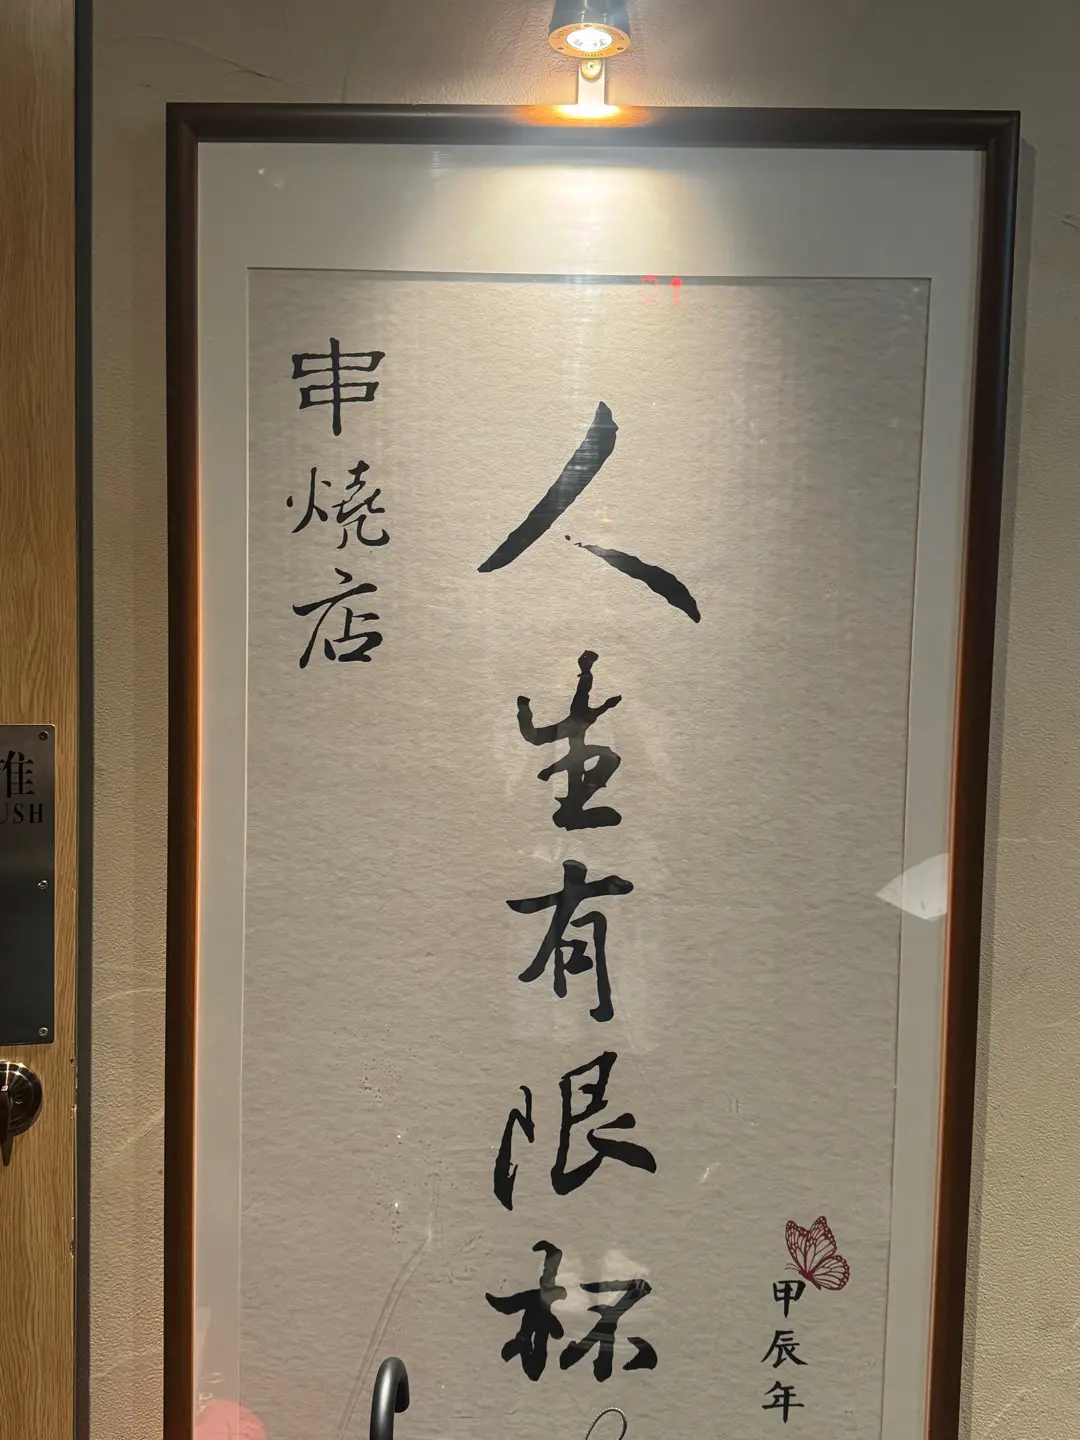 串燒店
人生有限杯
甲辰年
推
USH